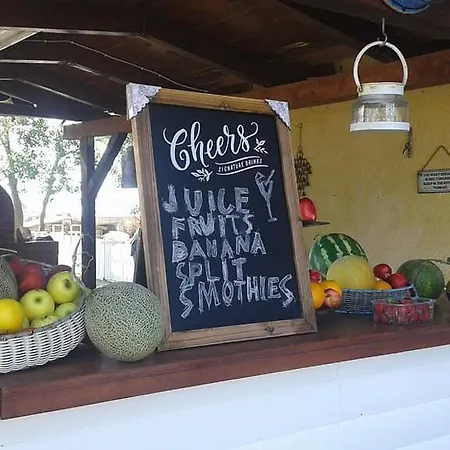 Cheers
SIGNATURE DRINKS
JUICE
FRUITS
BANANA
SPLIT
SMOTHIES